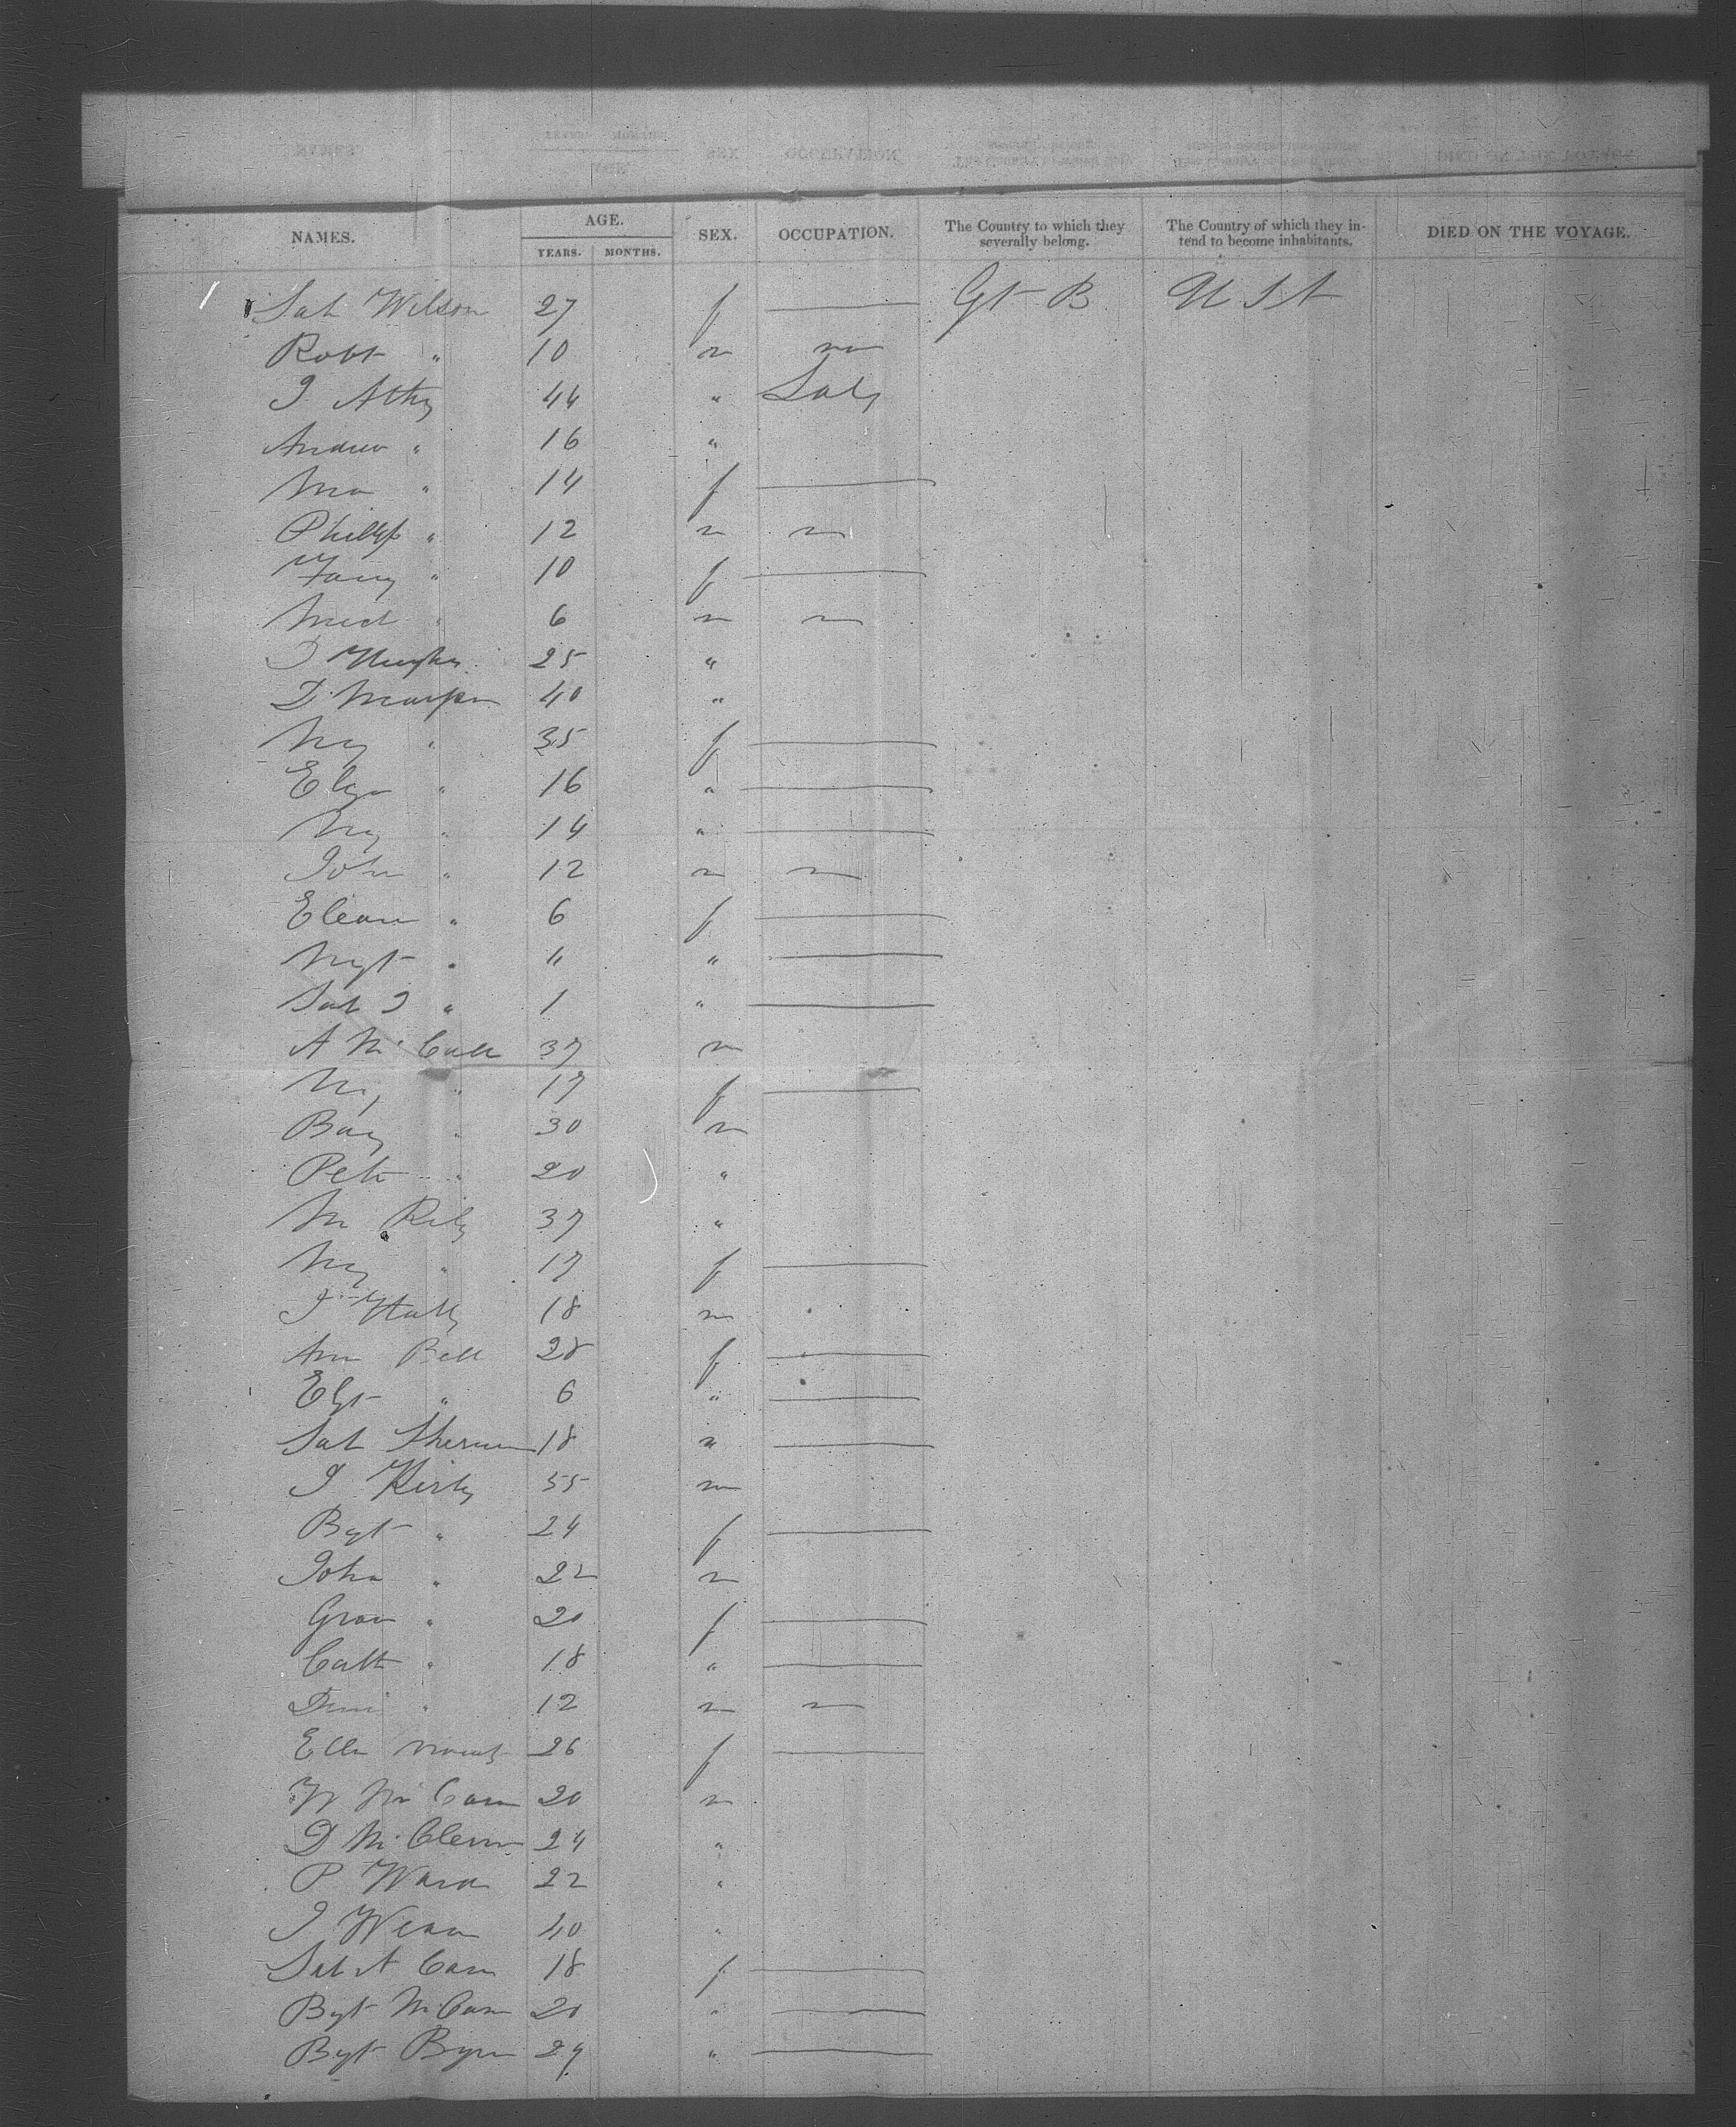 NAMES. AGE. YEARS. MONTHS. SEX. OCCUPATION. The Country to which they severally belong. The Country of which they intend to become inhabitants. DIED ON THE VOYAGE.
Sah Wilson 27 f — Gt B U S A
Robt " 10 m
J Athy 44 " Labr
Andrew " 16 "
" 14 f —
Phillip " 12 m
Fany " 10 f —
" 6 m
J Hughes 25 "
D 40 "
My " 35 f —
Eliza " 16 " —
My " 14 " —
John " 12 m
Elean " 6 f —
Mgt " " " —
Sah J " 1 " —
A McCall 37 m
My " 17 f —
" 30 m
Peter " 20 "
M Rily 37 "
My " 17 f —
J 18 m
Ann Bell 28 f —
Elzt " 6 " —
Sah Sherman 18 " —
J Kirby 55 m
Bgt " 24 f —
John " 22 m
" 20 f —
Cath " 18 " —
" 12 m
Ellen 26 f —
Mc 20 m
D McClenn 24 "
P Ward 22 "
J 40 "
Sah A 18 f —
Bgt 20 " —
Bgt Byrn 24 " —